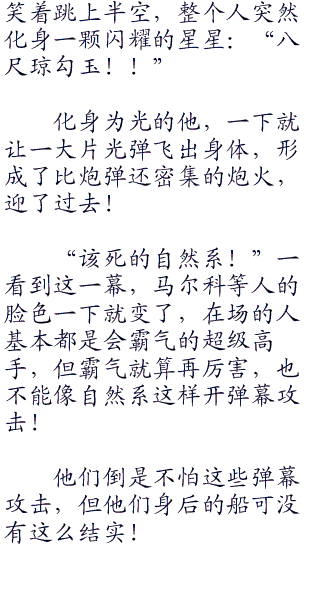 笑着跳上半空，整个人突然
化身一颗闪耀的星星：“八
尺琼勾玉！！”
化身为光的他，一下就
让一大片光弹飞出身体，形
成了比炮弹还密集的炮火，
迎了过去！
“该死的自然系！”一
看到这一幕，马尔科等人的
脸色一下就变了，在场的人
基本都是会霸气的超级高
手，但霸气就算再厉害，也
不能像自然系这样开弹幕攻
击！
他们倒是不怕这些弹幕
攻击，但他们身后的船可没
有这么结实！